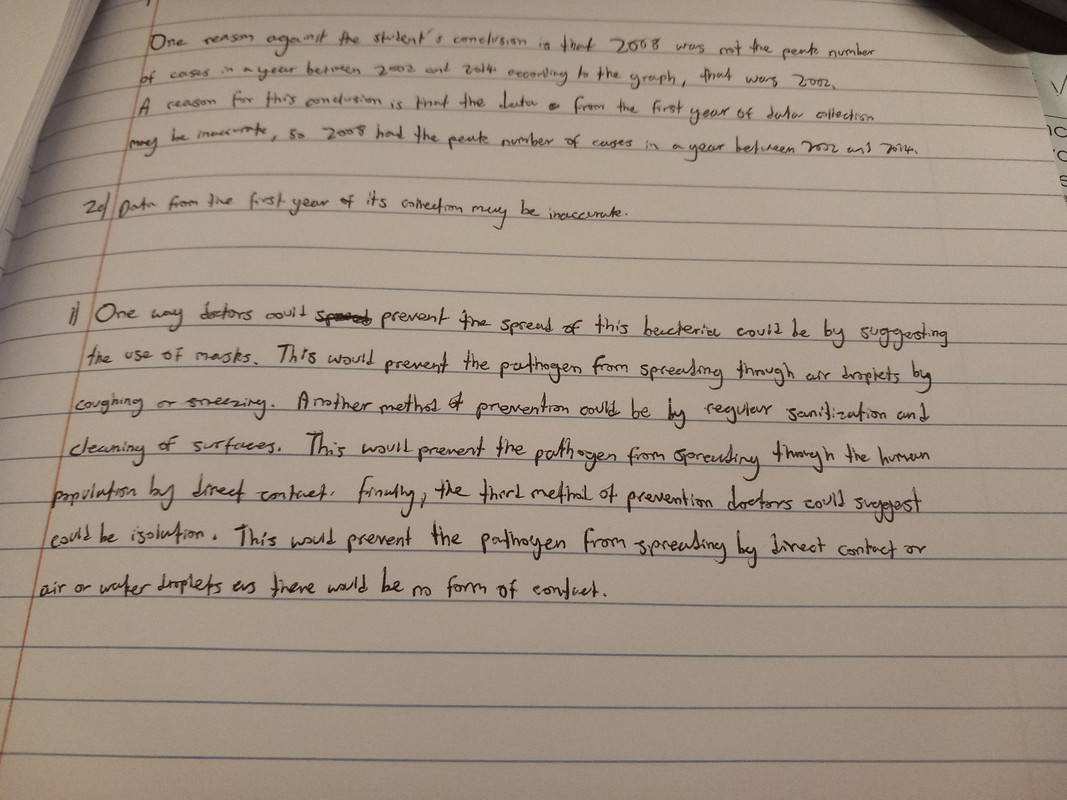 One reason against the student's conclusion is that 2008 was not the peak number
of cases in a year between 2002 and 2014 according to the graph, that was 2002.
A reason for this conclusion is that the data from the first year of data collection
may be inaccurate, so 2008 had the peak number of cases in a year between 2002 and 2014.
2d) Data from the first year of its collection may be inaccurate.
1) One way doctors could prevent the spread of this bacteria could be by suggesting
the use of masks. This would prevent the pathogen from spreading through air droplets by
coughing or sneezing. Another method of prevention could be by regular sanitization and
cleaning of surfaces. This would prevent the pathogen from spreading through the human
population by direct contact. Finally, the third method of prevention doctors could suggest
could be isolation. This would prevent the pathogen from spreading by direct contact or
air or water droplets as there would be no form of contact.